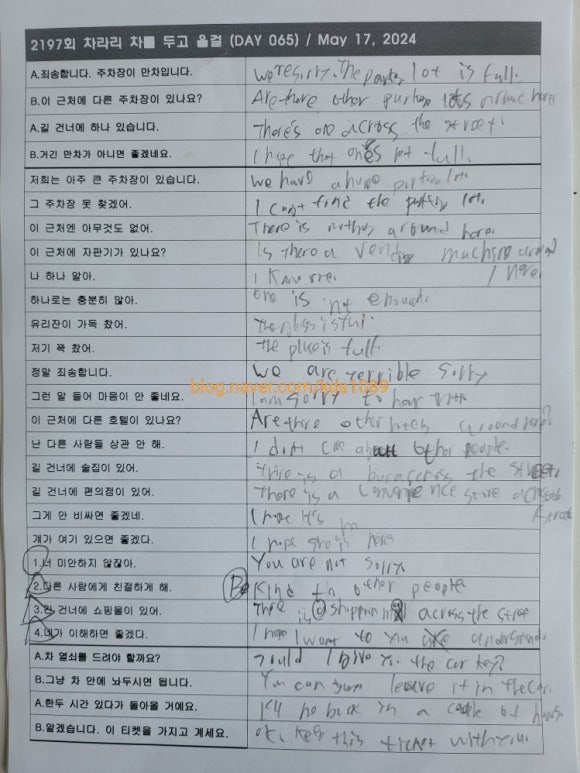 2197회 차라리 차를 두고 올걸 (DAY 065) / May 17, 2024
A.죄송합니다. 주차장이 만차입니다. we're sorry. The lot is full.
B.이 근처에 다른 주차장이 있나요? Are there other lots here
A.길 건너에 하나 있습니다. There's one across the street.
B.거긴 만차가 아니면 좋겠네요. I hope that one's not full.
저희는 아주 큰 주차장이 있습니다. we have a huge lot.
그 주차장 못 찾겠어. I can't find the lot.
이 근처엔 아무것도 없어. There is nothing around here.
이 근처에 자판기가 있나요? Is there a around
here.
나 하나 알아. I know one.
하나로는 충분히 않아. one is not enough.
유리잔이 가득 찼어. full.
저기 꽉 찼어. the place is full.
정말 죄송합니다. we are terrible sorry
그런 말 들어 마음이 안 좋네요. I am sorry to
이 근처에 다른 호텔이 있나요? Are there other around here?
난 다른 사람들 상관 안 해. I don't other people.
길 건너에 술집이 있어. there is a the street
길 건너에 편의점이 있어. There is a store
그게 안 비싸면 좋겠네. I hope it's
걔가 여기 있으면 좋겠다. I hope she's here
1.너 미안하지 않잖아. You are not sorry.
2.다른 사람에게 친절하게 해. Be kind other people
3.길 건너에 쇼핑몰이 있어. There is a across the
4.네가 이해하면 좋겠다. I want to you
A.차 열쇠를 드려야 할까요? I give you the car key?
B.그냥 차 안에 놔두시면 됩니다. You can leave it in the car.
A.한두 시간 있다가 돌아올 거예요. I'll be back in a of hours
B.알겠습니다. 이 티켓을 가지고 계세요. ok. keep this ticket with you.
blog.naver.com/kds1089